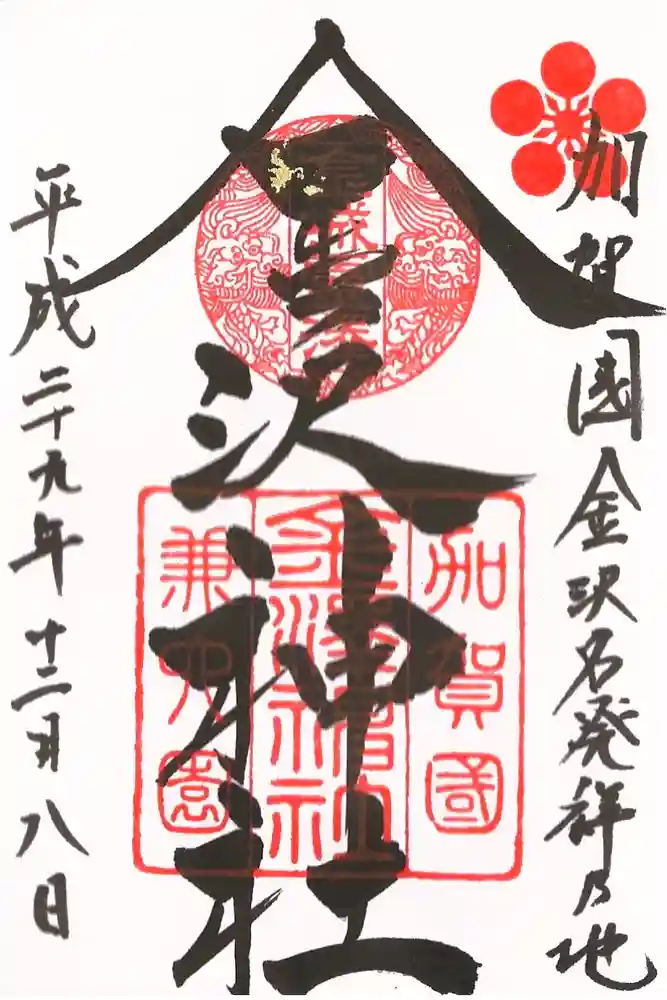 加賀國金沢名発祥乃地
金沢神社
平成二十九年十二月八日
加賀國
金澤神社
兼六園